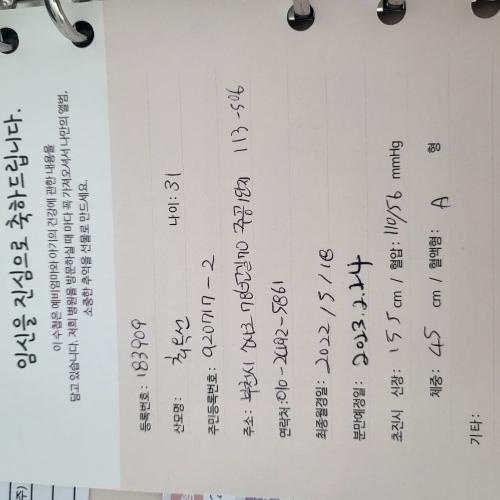 임신을 진심으로 축하드립니다.
이 수첩은 예비엄마와 아기의 건강에 관한 내용을
담고 있습니다. 저희 병원을 방문하실 때 마다 꼭 가져오셔서 나만의 앨범,
소중한 추억을 선물로 만드세요.
등록번호: 183909
산모명: 나이: 31
주민등록번호: 920717-2
주소: 부천시 주공1단지 113-506
연락처: 010-2692-5861
최종월경일: 2022/5/18
분만예정일: 2023.2.24
초진시 신장: 155 cm / 혈압: 110/56 mmHg
체중: 45 cm / 혈액형: A 형
기타:
주)